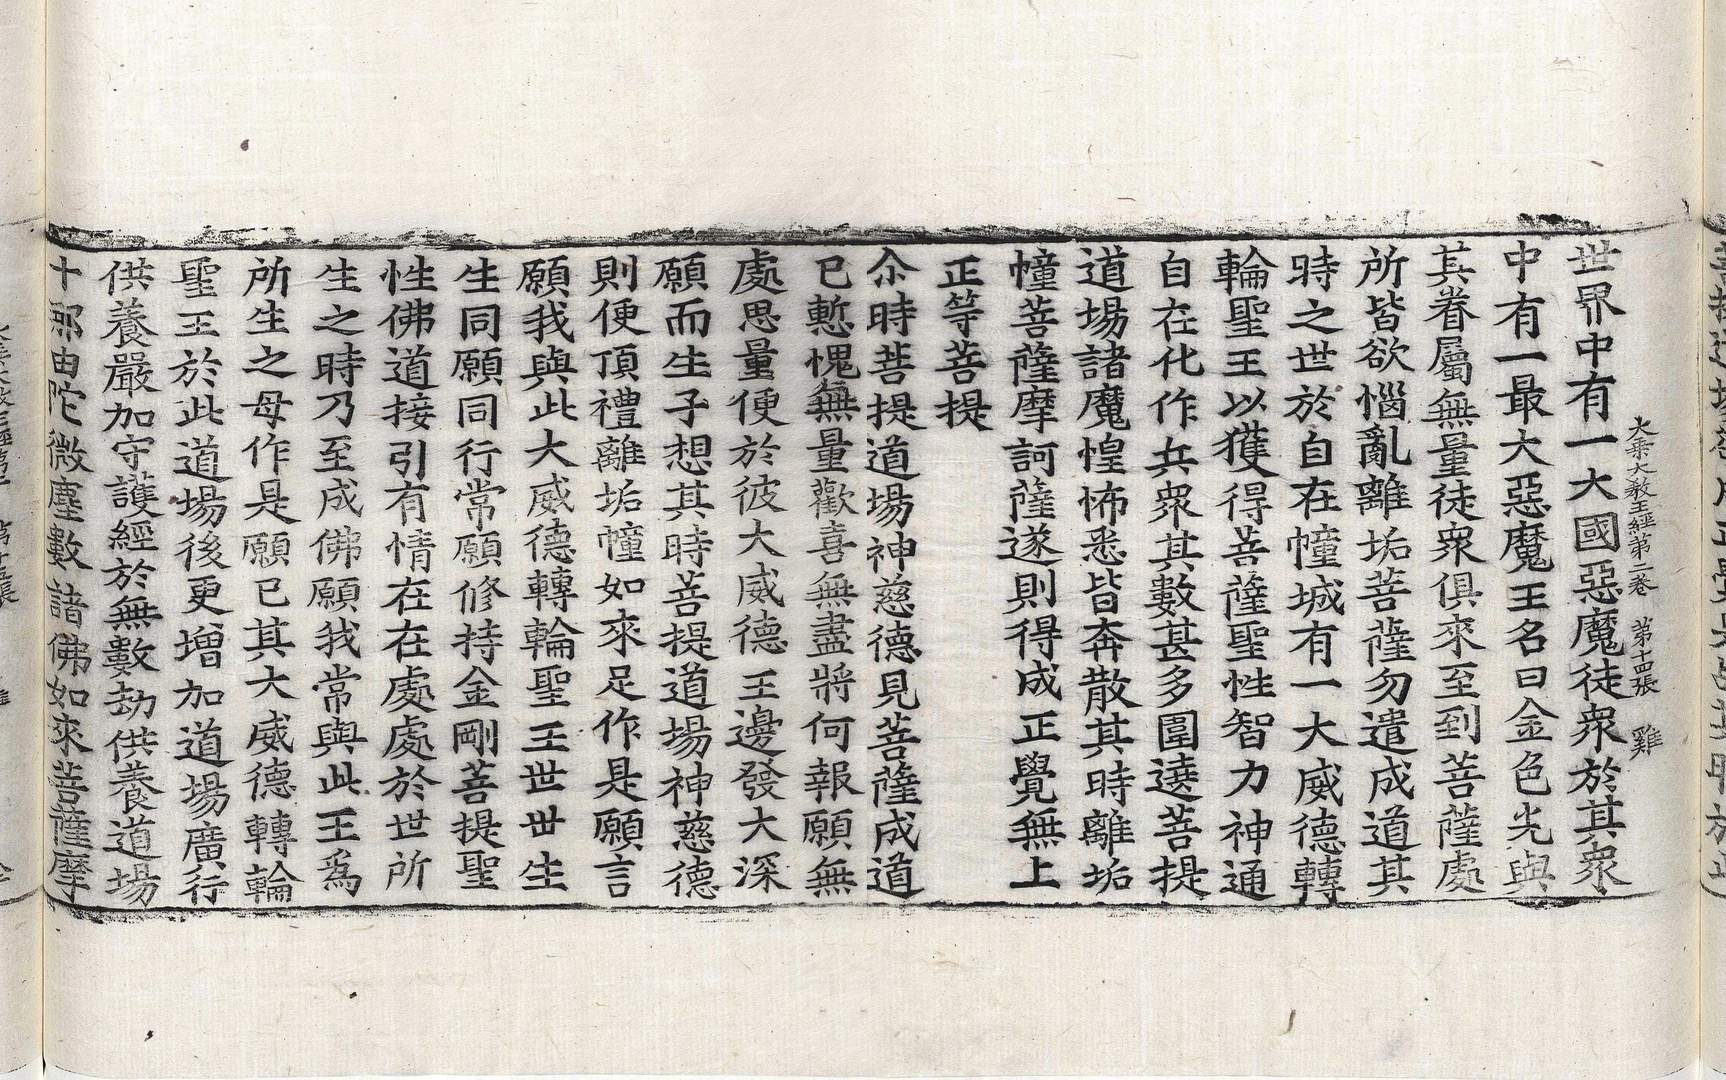 大乘大教王經第二卷　第十四張　雞
世界中有一大國惡魔徒衆於其衆
中有一最大惡魔王名曰金色光與
其眷屬無量徒衆俱來至到菩薩處
所皆欲惱亂離垢菩薩勿遣成道其
時之世於自在幢城有一大威德轉
輪聖王以獲得菩薩聖性智力神通
自在化作兵衆其數甚多圍遶菩提
道場諸魔惶怖悉皆奔散其時離垢
幢菩薩摩訶薩遂則得成正覺無上
正等菩提
尒時菩提道場神慈德見菩薩成道
已慙愧無量歡喜無盡將何報願無
處思量便於彼大威德王邊發大深
願而生子想其時菩提道場神慈德
則便頂禮離垢幢如來足作是願言
願我與此大威德轉輪聖王世世生
生同願同行常願修持金剛菩提聖
性佛道接引有情在在處處於世所
生之時乃至成佛願我常與此王爲
所生之母作是願已其大威德轉輪
聖王於此道場後更增加道場廣行
供養嚴加守護經於無數劫供養道場
十那由陀微塵數諸佛如來菩薩摩